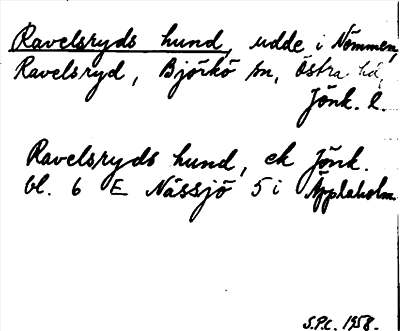 Ravelsryds hund, udde i Nömmen,
Ravelsryd, Björkö sn, Östra hd,
Jönk. l.
Ravelsryds hund, ek Jönk.
bl. 6 E Nässjö 5 i Äpplaholm
S.P.C. 1958.